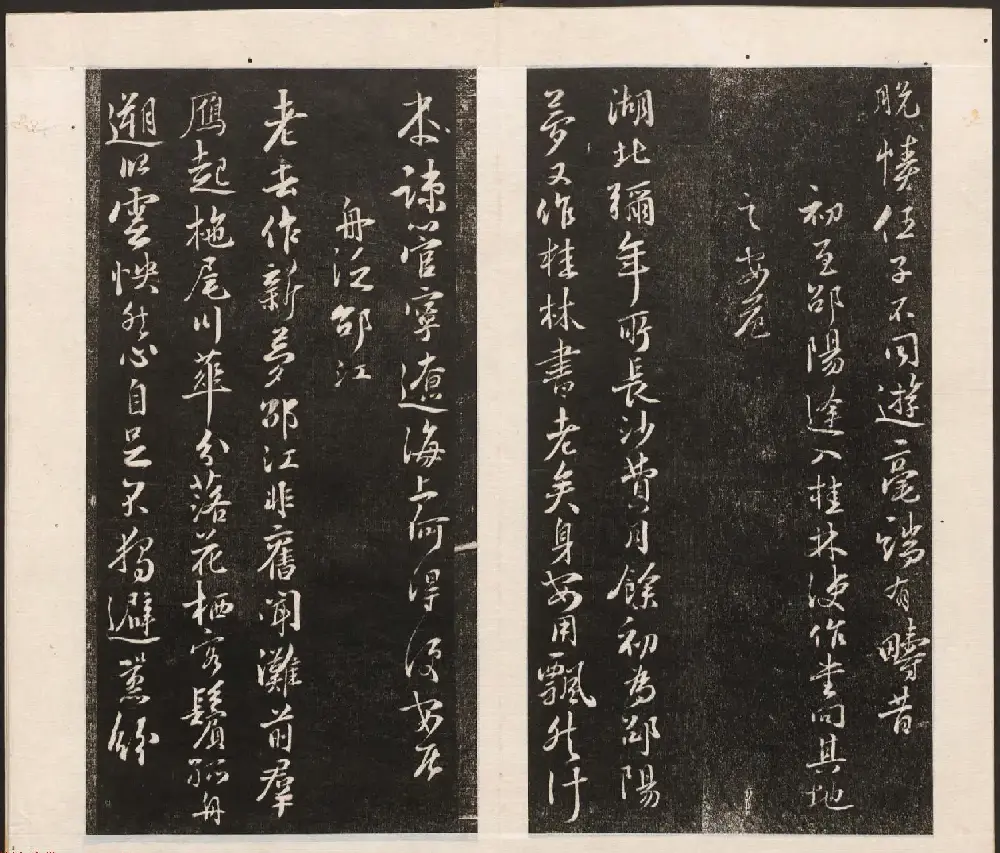 脱情任子不同遊遊毫端有疇昔
初至邵陽逢入桂林使作書問其地
之安危
湖北彌年所長沙費月餘初為邵陽
夢又作桂林書老矣身安用飄然計
本踈管寧遼海上何得便安居
舟泛邵江
老去作新夢邵江非舊聞灘前羣
鴈起柂尾川華分落花栖客鬢孤舟
遡歸雲快然心自足不獨避囂紛